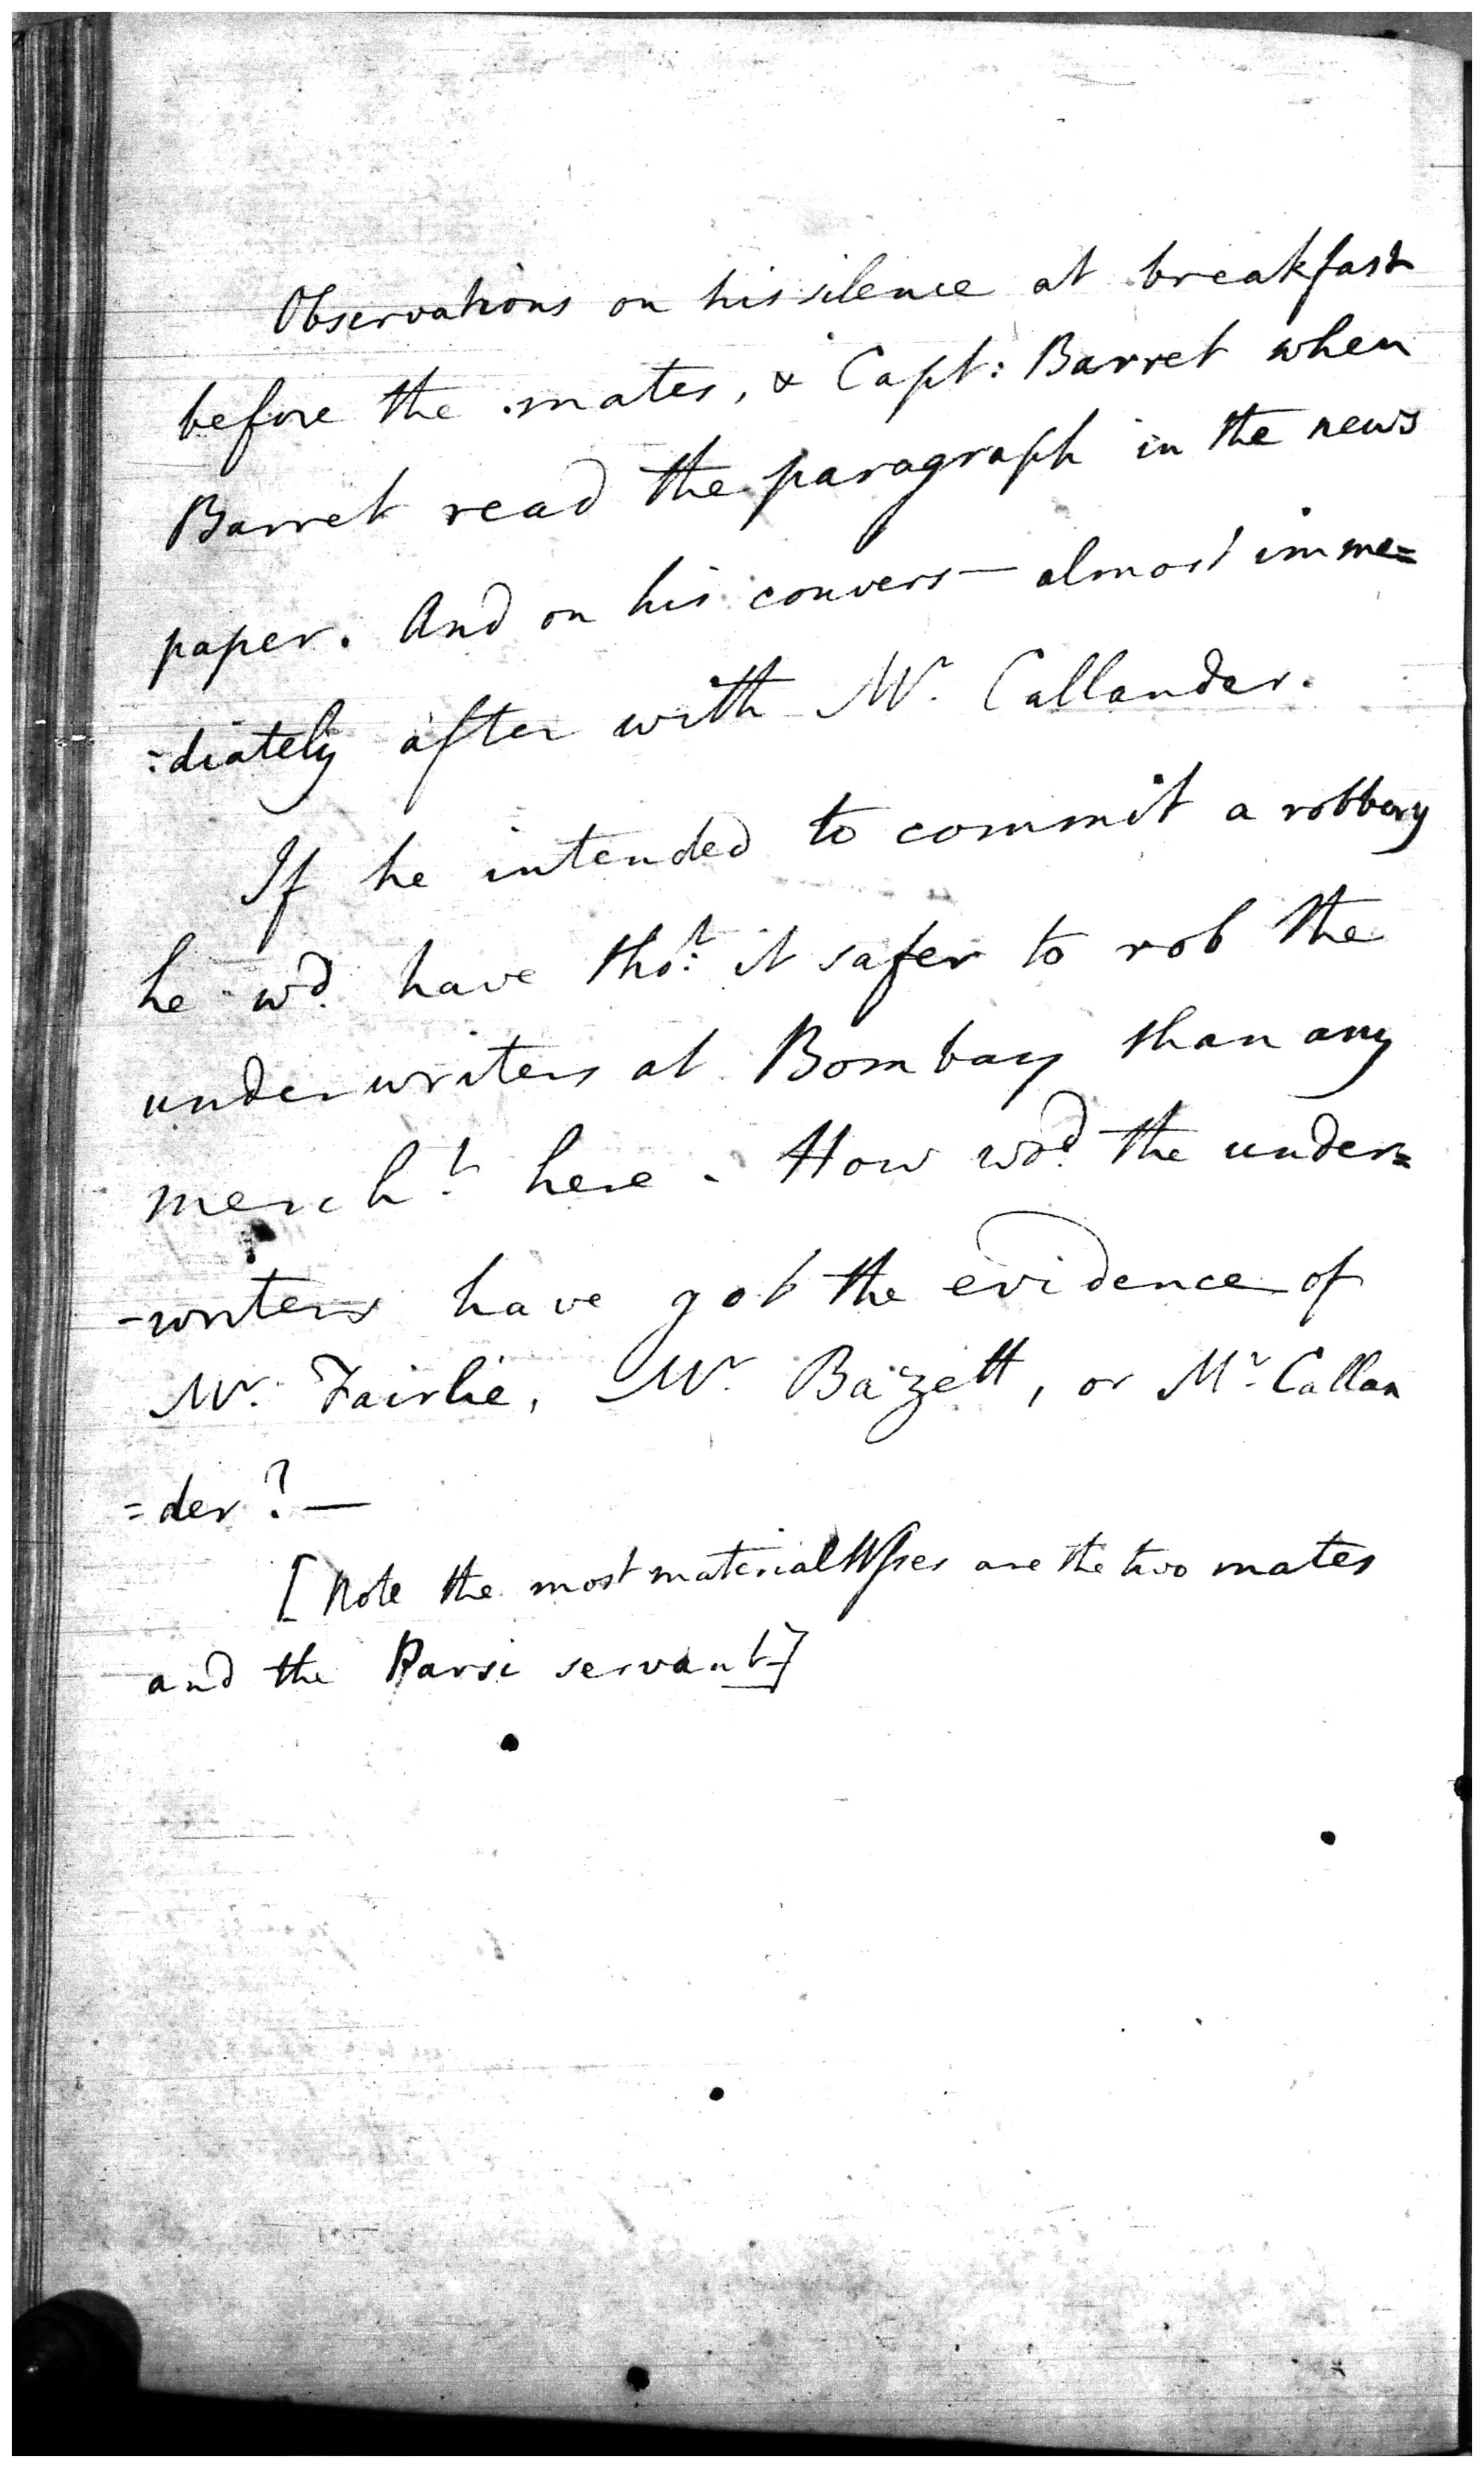 Observations on his silence at breakfast
before the mates, & Capt: Barret when
Barret read the paragraph in the news
paper. And on his convers— almost imme=
=diately after with Mr. Callander.
If he intended to commit a robbery
he wd. have thot. it safer to rob the
underwriters at Bombay than any
mercht. here. How wod. the under=
-writers have got the evidence of
Mr. Fairlie, Mr. Bazett, or Mr. Callan
=der? —
[Note the most material Wsses are the two mates
and the Parsi servant]